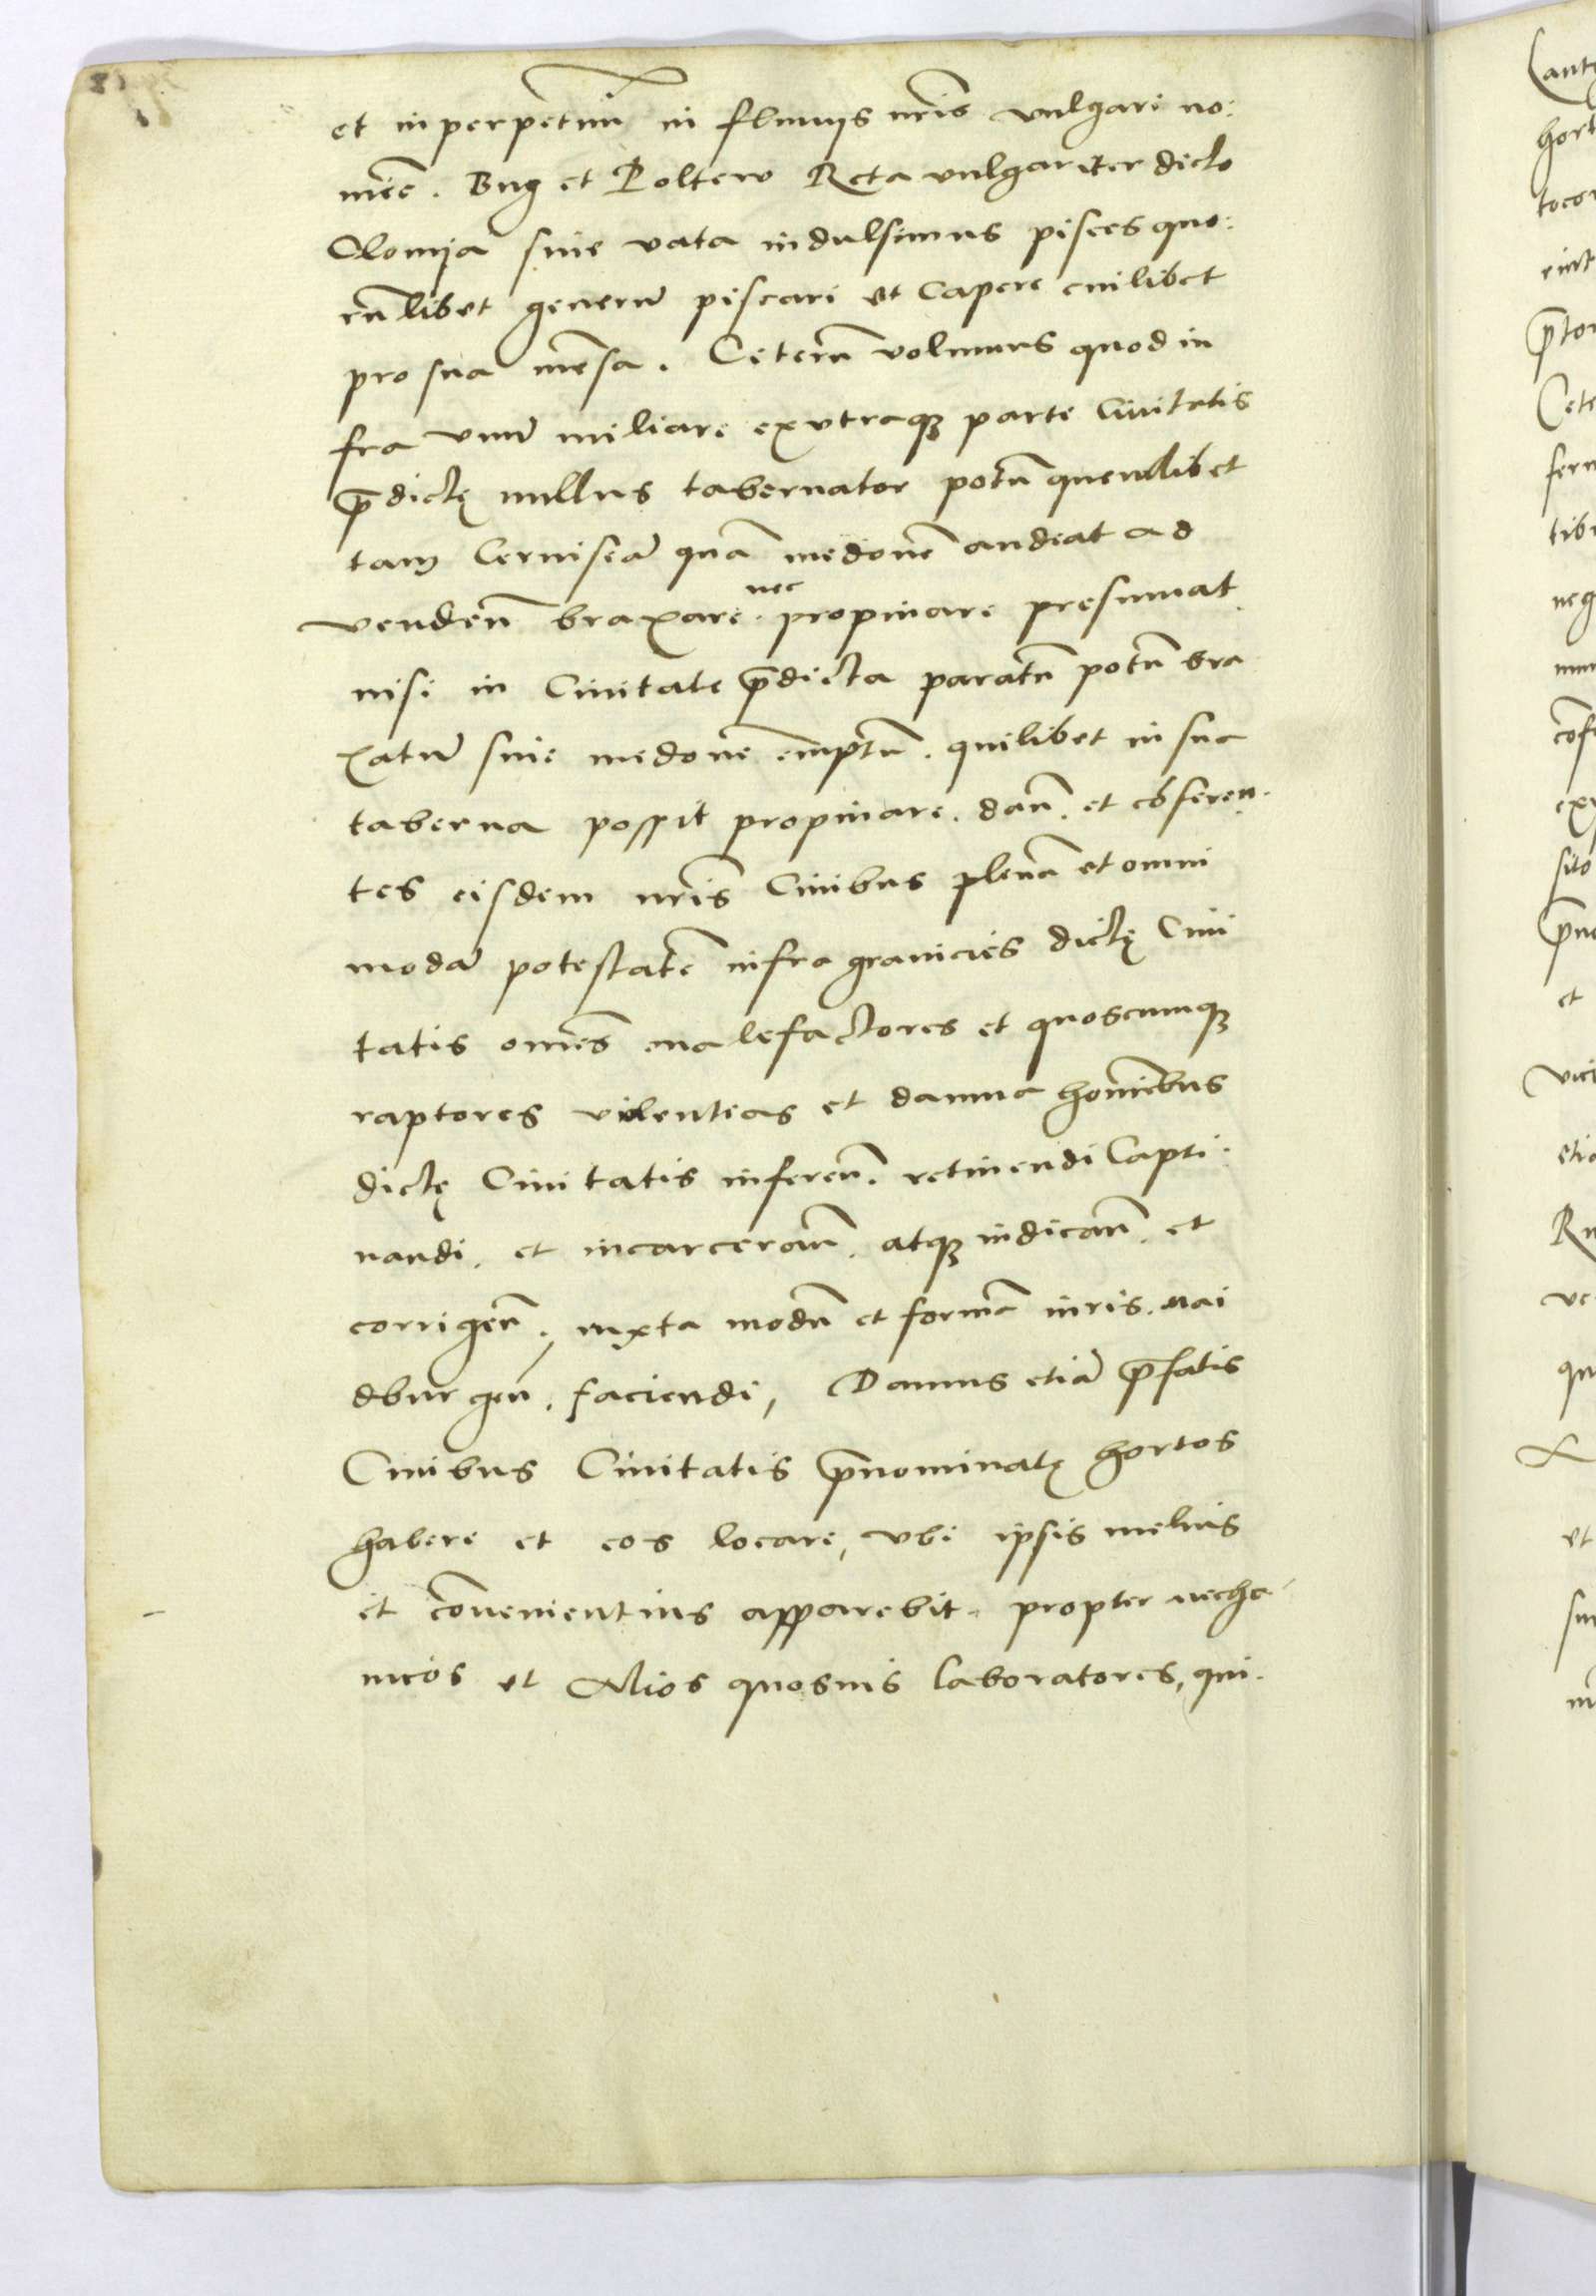 et inperpetuũ in fluuijs nr̃is vulgari no:
mĩe. Bug et Poltew Reta vulgariter dicto
Clomja siue vata indulsimus pisces quo:
rũlibet generũ piscari et Capere cuilibet
pro sua mẽsa. Ceterũ volumus quod in
fra vnũ miliare ex vtraqꝫ parte Ciuitatis
p̃dictę nullus tabernator potũ quemlibet
tam Ceruiseã quã medonẽ audeat ad
vendeñ braxare nec propinare presumat
nisi in Ciuitate p̃dicta paratũ potũ bra
xatũ siue medonẽ emptũ. quilibet in sua
taberna possit propinare. dañ. et cõferen.
tes eisdem nr̃is Ciuibus plenã et omni
modã potestatẽ infra granicies dictę Ciui
tatis omẽs malefactores et quoscumqꝫ
raptores violentias et damna homĩbus
dictę Ciuitatis infereñ. retinendi Capti.
uandi. et incarcerañ. atqꝫ iudicañ. et
corrigeñ. iuxta modũ et formã iuris. mai
dburgeñ. faciendi, Damus etiã p̃fatis
Ciuibus Ciuitatis p̃nominatę hortos
habere et eos locare, vbi ipsis melius
et cõuenientius apparebit. propter mecha
nicos et Alios quosuis laboratores, qui.